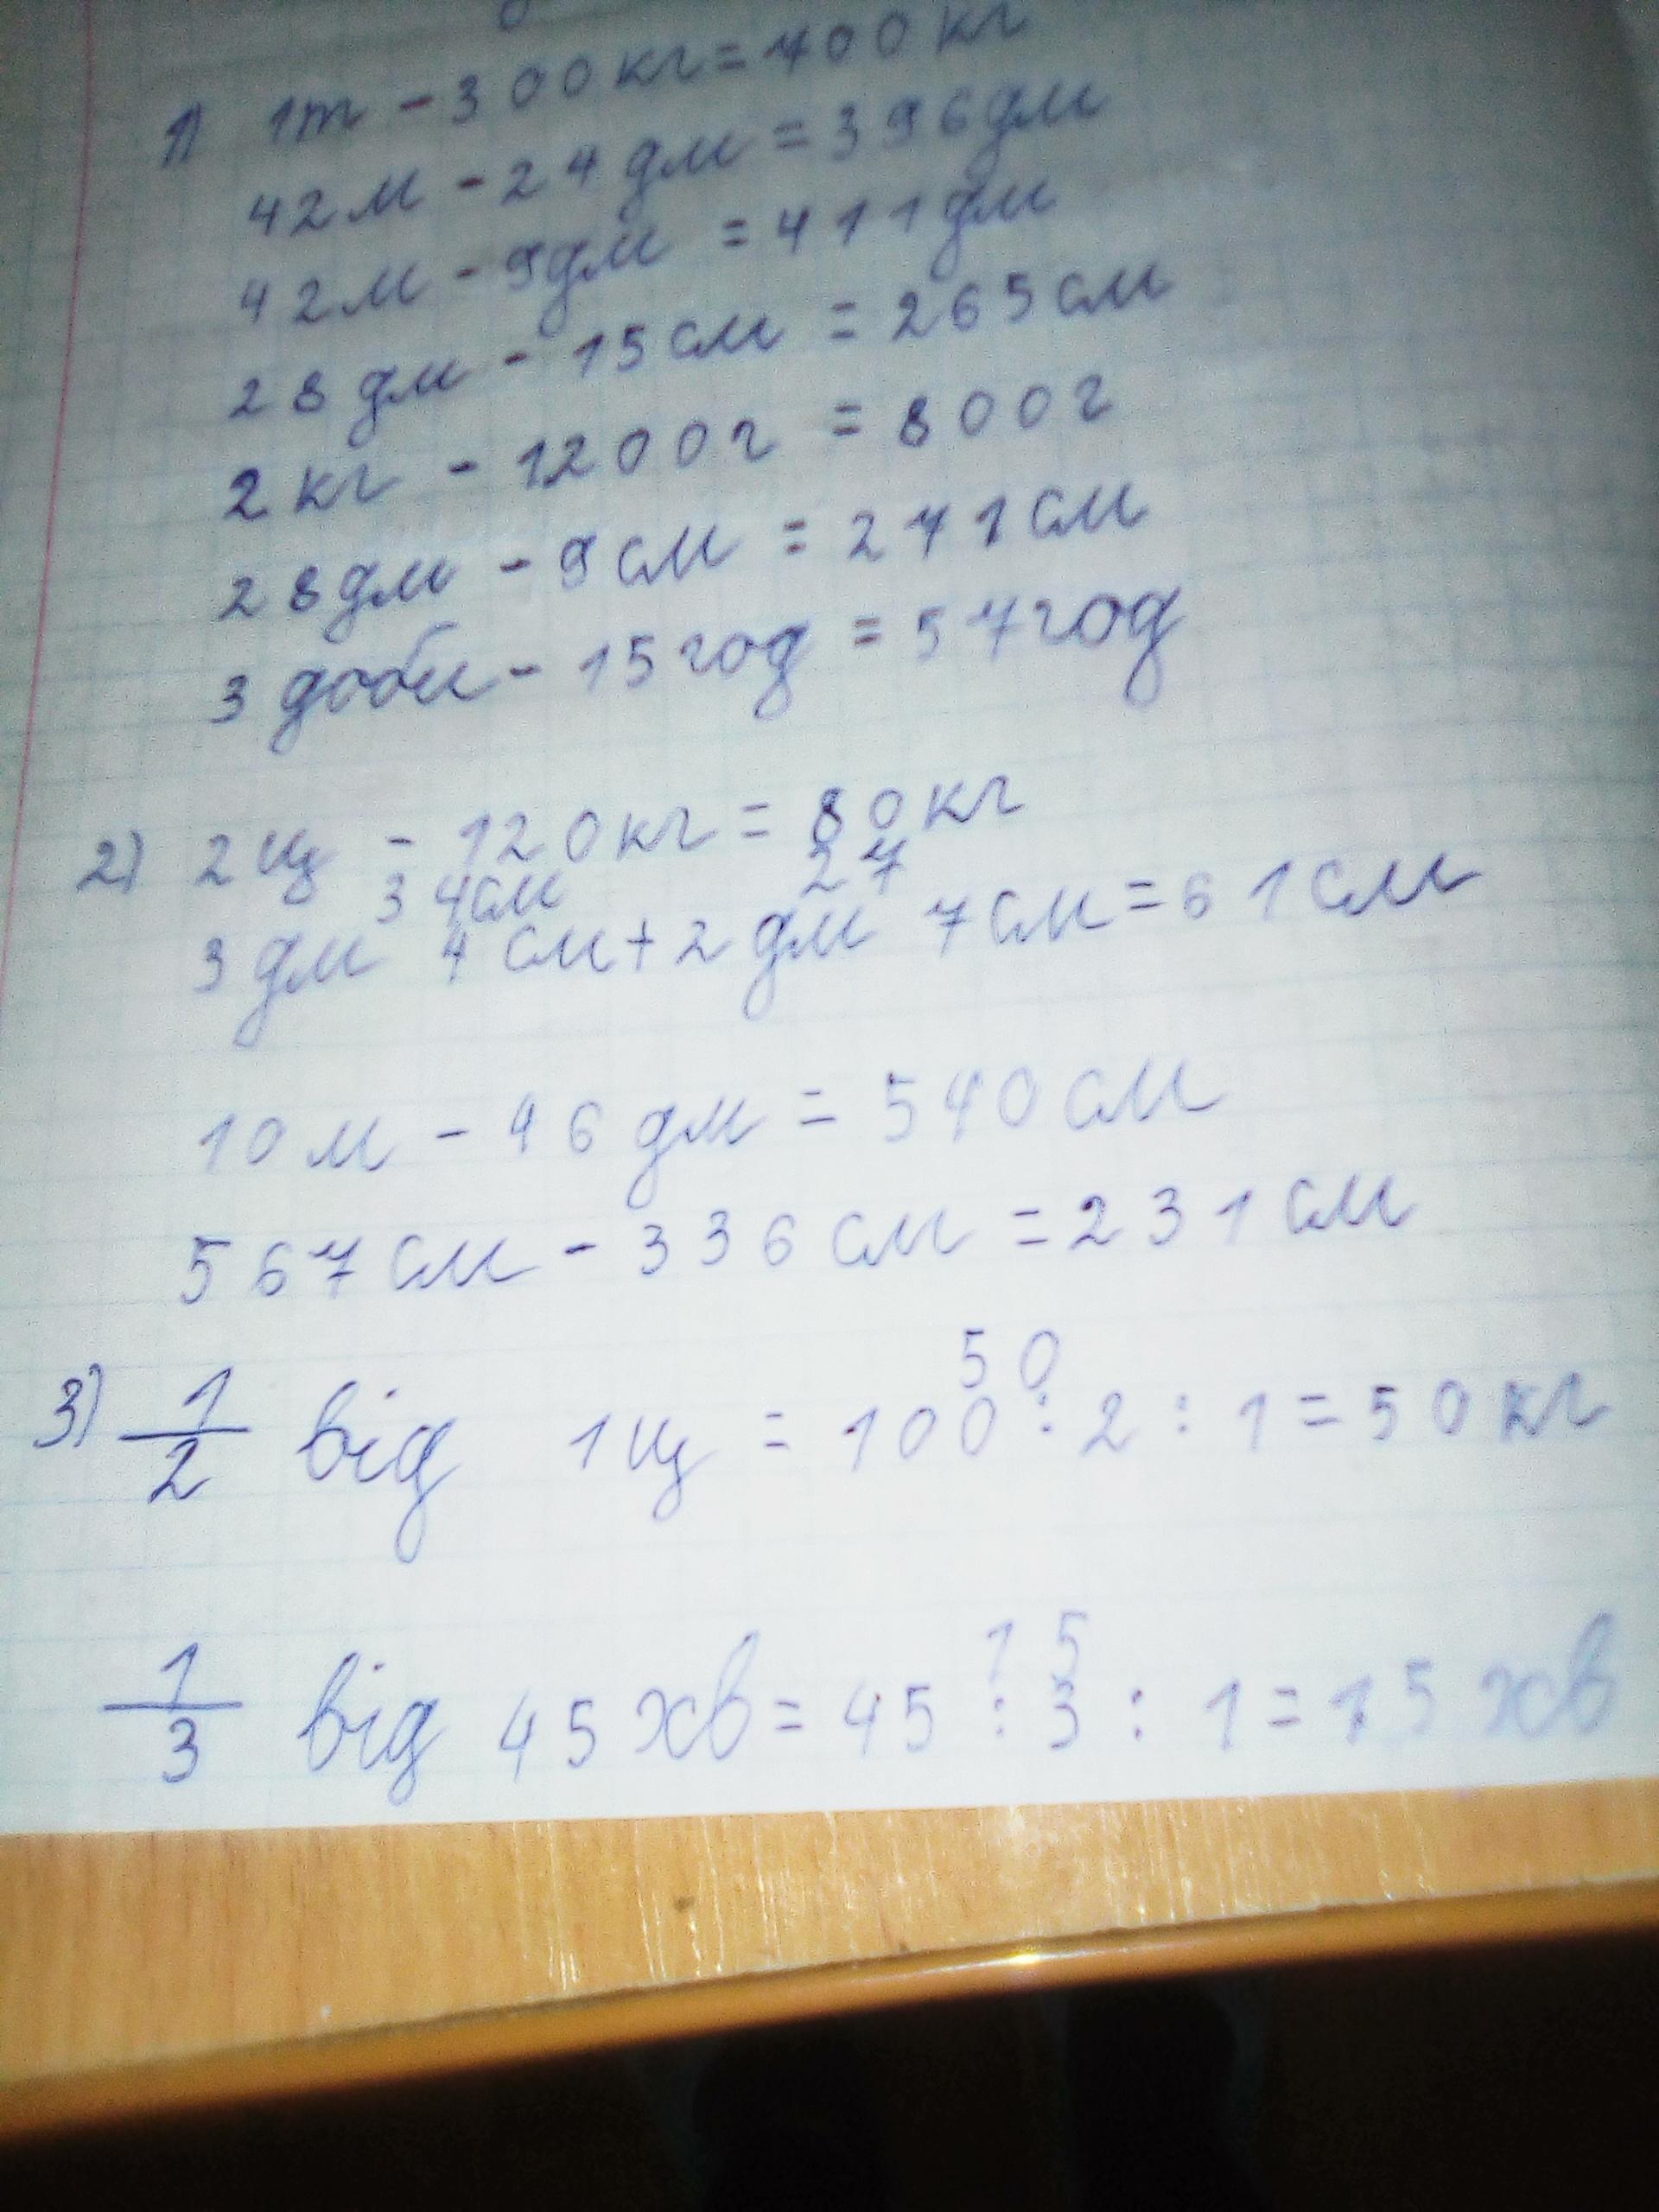 1) 1т - 300кг = 700 кг
42м - 24 дм = 396дм
42м - 9дм = 411дм
28 дм - 15 см = 265 см
2 кг - 1200г = 800г
28дм - 9см = 271см
3 доби - 15 год = 57год
2) 2ц - 120кг = 80кг
34см 27
3 дм 4 см + 2 дм 7см = 61см
10 м - 46 дм = 540 см
567см - 336 см = 231 см
50
3) 1/2 від 1ц = 100 : 2 : 1 = 50 кг
15
1/3 від 45 хв = 45 : 3 : 1 = 15 хв